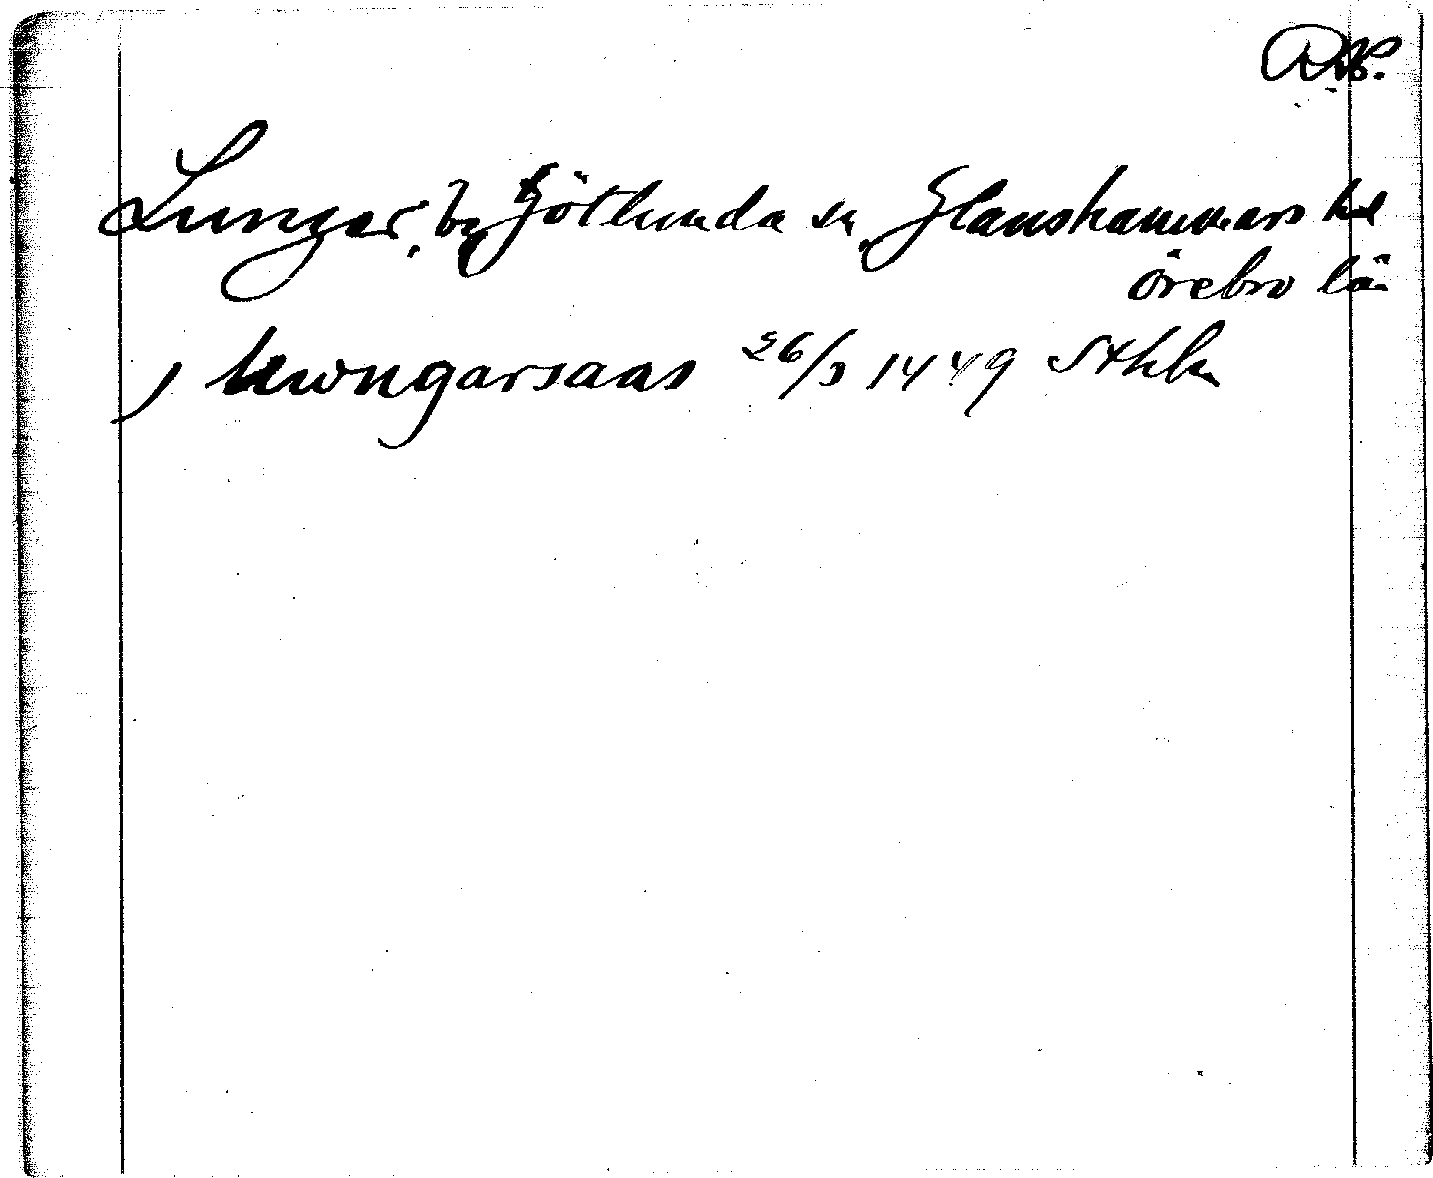 Lunger, by Götlunda sn, Glanshammars hd
Örebro län
j lwngarsaas 26/3 1449 Sthlm